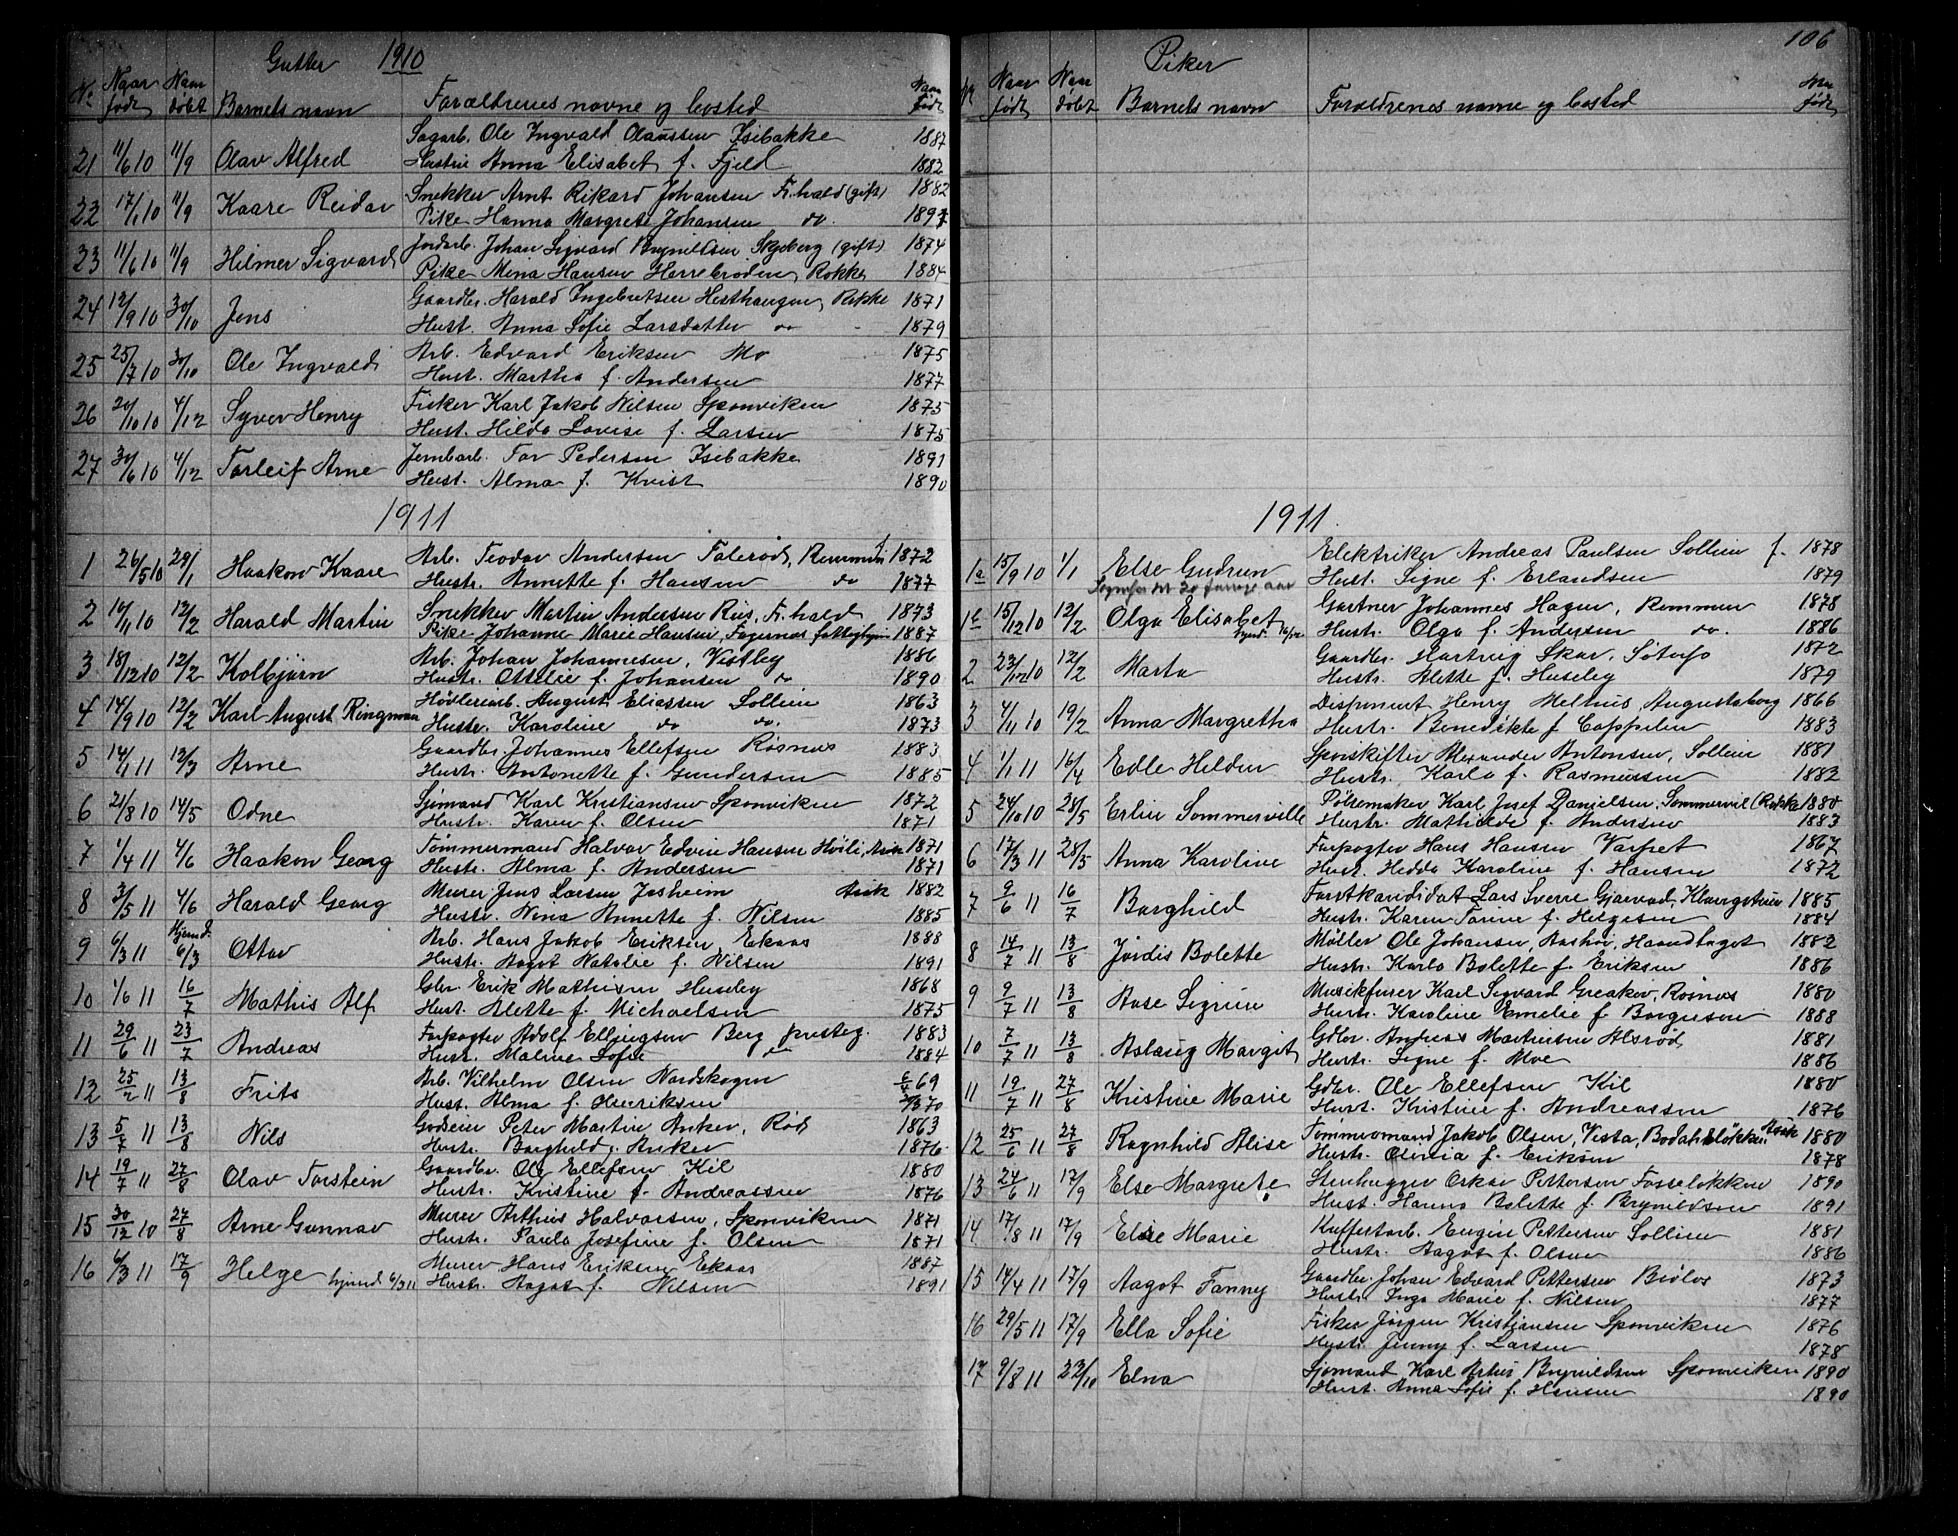 Gutter 1910
No Naar født Naar døbt Barnets navn Forældrenes navne og bosted Naar født
Sagarb. Ole Ingvald Olaussen Isebakke 1887
21 11/6 10 11/9 Olav Alfred Hustru Anna Elisabet f. Fjeld 1882
Snekker Arnt Rikard Johansen Fr.hald (gift) 1882
22 17/1 10 11/9 Kaare Reidar Pike Hanna Margrete Johansen do. 1897
Jordarb. Johan Sigvard Brynildsen Skjeberg (gift) 1874
23 11/6 10 11/9 Hilmer Sigvard Pike Mina Hansen Herrebrøden, Rokke 1884
Gaardbr. Harald Ingebretsen Hesthaugen, Rokke 1871
24 12/9 10 30/10 Jens Hust. Anna Sofie Larsdatter do 1879
Arb. Edvard Eriksen Mo 1875
25 25/7 10 30/10 Ole Ingvald Hust. Martha f. Andersen 1877
Fisker Karl Jakob Nilsen Sponviken 1875
26 20/10 10 4/12 Syver Henry Hust. Hilda Lovise f. Larsen 1875
Jernbarb. Tor Pedersen Isebakke 1891
27 30/6 10 4/12 Torleif Arne Hust. Alma f. Kvist 1890
1911
Arb. Teodor Andersen Folerød, Remmen 1872
1 26/5 10 29/1 Haakon Kaare Hustr. Annette f. Hansen do 1877
Snekker Martin Andersen Riis, Fr.hald 1873
2 10/11 10 12/2 Harald Martin Pike Johanne Marie Hansen, Fagernes fattighjem 1887
Arb. Johan Johannesen, Vestby 1886
3 18/12 10 12/2 Kolbjørn Hustr. Ottelie f. Johansen do 1890
Høvleriarb. August Eliassen Sollien 1863
4 14/9 10 12/2 Karl August Ringman Hustr. Karoline do do. 1873
Gaardbr. Johannes Ellefsen Røsnes 1883
5 14/1 11 12/3 Arne Hustr. Antonette f. Gundersen 1885
Sjømand Karl Kristiansen Sponviken 1872
6 21/8 10 14/5 Odne Hustr. Karen f. Olsen 1871
Tømmermand Halvor Edvin Hansen Høili, Asak 1871
7 1/4 11 4/6 Haakon Georg Hustr. Alma f. Andersen 1871
Murer Jens Larsen Josheim Asak 1882
8 3/5 11 4/6 Harald Georg Hustr. Nina Annette f. Nilsen 1885
Arb. Hans Jakob Eriksen, Ekaas 1888
9 6/3 11 hjemd. 6/3 Ottar Hustr. Aagot Natalie f. Nilsen 1891
Gbr. Erik Mathisen Huseby 1868
10 1/6 11 16/7 Mathis Alf Hust. Alette f. Michaelsen 1875
Forpagter Adolf Ellingsen Berg presteg. 1883
11 29/6 11 23/7 Andreas Hust. Maline Sofie 1884
Arb. Vilhelm Olsen Nordskogen 6/4 69
12 25/2 11 13/8 Frits Hust. Alma f. Henriksen 2/3 70
Godseier Peter Martin Anker, Rød 1863
13 5/7 11 13/8 Nils Hustr. Borghild f. Anker 1876
Gaardbr. Ole Ellefsen Kil 1880
14 19/7 11 27/8 Olav Torstein Hustr. Kristine f. Andreassen 1876
Murer Arthur Halvorsen, Sponviken 1871
15 30/12 10 27/8 Arne Gunnar Hustr. Paula Josefine f. Olsen 1871
Murer Hans Eriksen Ekaas 1887
16 6/3 11 17/9 Helge hjemd. 6/3 11 Hustr. Aagot f. Nilsen 1891
106
Piker
Nr Naar født Naar døbt Barnets navn Forældrenes navne og bosted Naar født
1911.
Elektriker Andreas Paulsen Sollien f. 1878
1a 15/9 10 1/1 Else Gudrun Hust. Signe f. Erlandsen 1879
Gartner Johannes Hagen, Remmen 1878
1b 15/12 10 12/2 Olga Elisabet hjemd. 16/12 Hustr. Olga f. Andersen do. 1886
Gaardbr. Hartvig Skar, 1872
2 23/12 10 12/2 Marta Hustr. Alette f. Huseby 1879
Disponent Henry Melhus Augustaborg 1866
3 4/11 10 19/2 Anna Margretha Hustr. Benedikte f. Cappelen 1883
Sporskifter Alexander Antonsen, Sollien 1881
4 1/1 11 16/4 Edle Helden Hustr. Karla f. Rasmussen 1882
Pølsemaker Karl Josef Danielsen, Sommervil (Rokke 1880
5 24/10 10 28/5 Erlin Sommerville Hustr. Mathilde f. Andersen 1883
Forpagter Hans Hansen Torpet 1867
6 17/3 11 28/5 Anna Karoline Hust. Hedda Karoline f. Hansen 1872
Forstkandidat Lars Sverre Gjørvad, 1885
7 9/6 11 16/7 Borghild Hustr. Karen Tomine f. Helgesen 1884
Møller Ole Johansen, Aashøi, Haandtaget 1882
8 14/7 11 13/8 Jordis Bolette Hustr. Karla Bolette f. Eriksen 1886
Musikfurer Karl Sigvard Greaker, Røsnes 1880
9 9/7 11 13/8 Aase Sigrun Hustr. Karoline Emelie f. Borgersen 1888
Gdbr. Andreas Martinsen Alsrød 1881
10 7/7 11 13/8 Aslaug Margit Hustr. Signe f. Moe 1886
Gdbr. Ole Ellefsen Kil 1880
11 19/7 11 27/8 Kristine Marie Hust. Kristine f. Andreassen 1876
Tømmermand Jakob Olsen, Vesta, Bodahlsløkken Asak 1880
12 25/6 11 27/8 Ragnhild Alise Hustr. Olivia f. Eriksen 1878
Stenhugger Oskar Pettersen Fosseløkken 1890
13 24/6 11 17/9 Else Margrete Hust. Hanna Bolette f. Brynildsen 1891
Kuffertarb. Eugen Pettersen Sollien 1881
14 17/8 11 17/9 Else Marie Hustr. Aagot f. Olsen 1886
Gaardbr. Johan Edvard Pettersen Bøler 1873
15 14/4 11 17/9 Aagot Fanny Hustr. Inga Marie f. Nilsen 1877
Fisker Jørgen Kristiansen Sponviken 1876
16 29/5 11 17/9 Ella Sofie Hustr. Jenny f. Larsen 1878
Sjømand Karl Artur Brynildsen Sponviken 1890
17 9/8 11 22/10 Elna Hust. Anna Sofie f. Hansen 1890